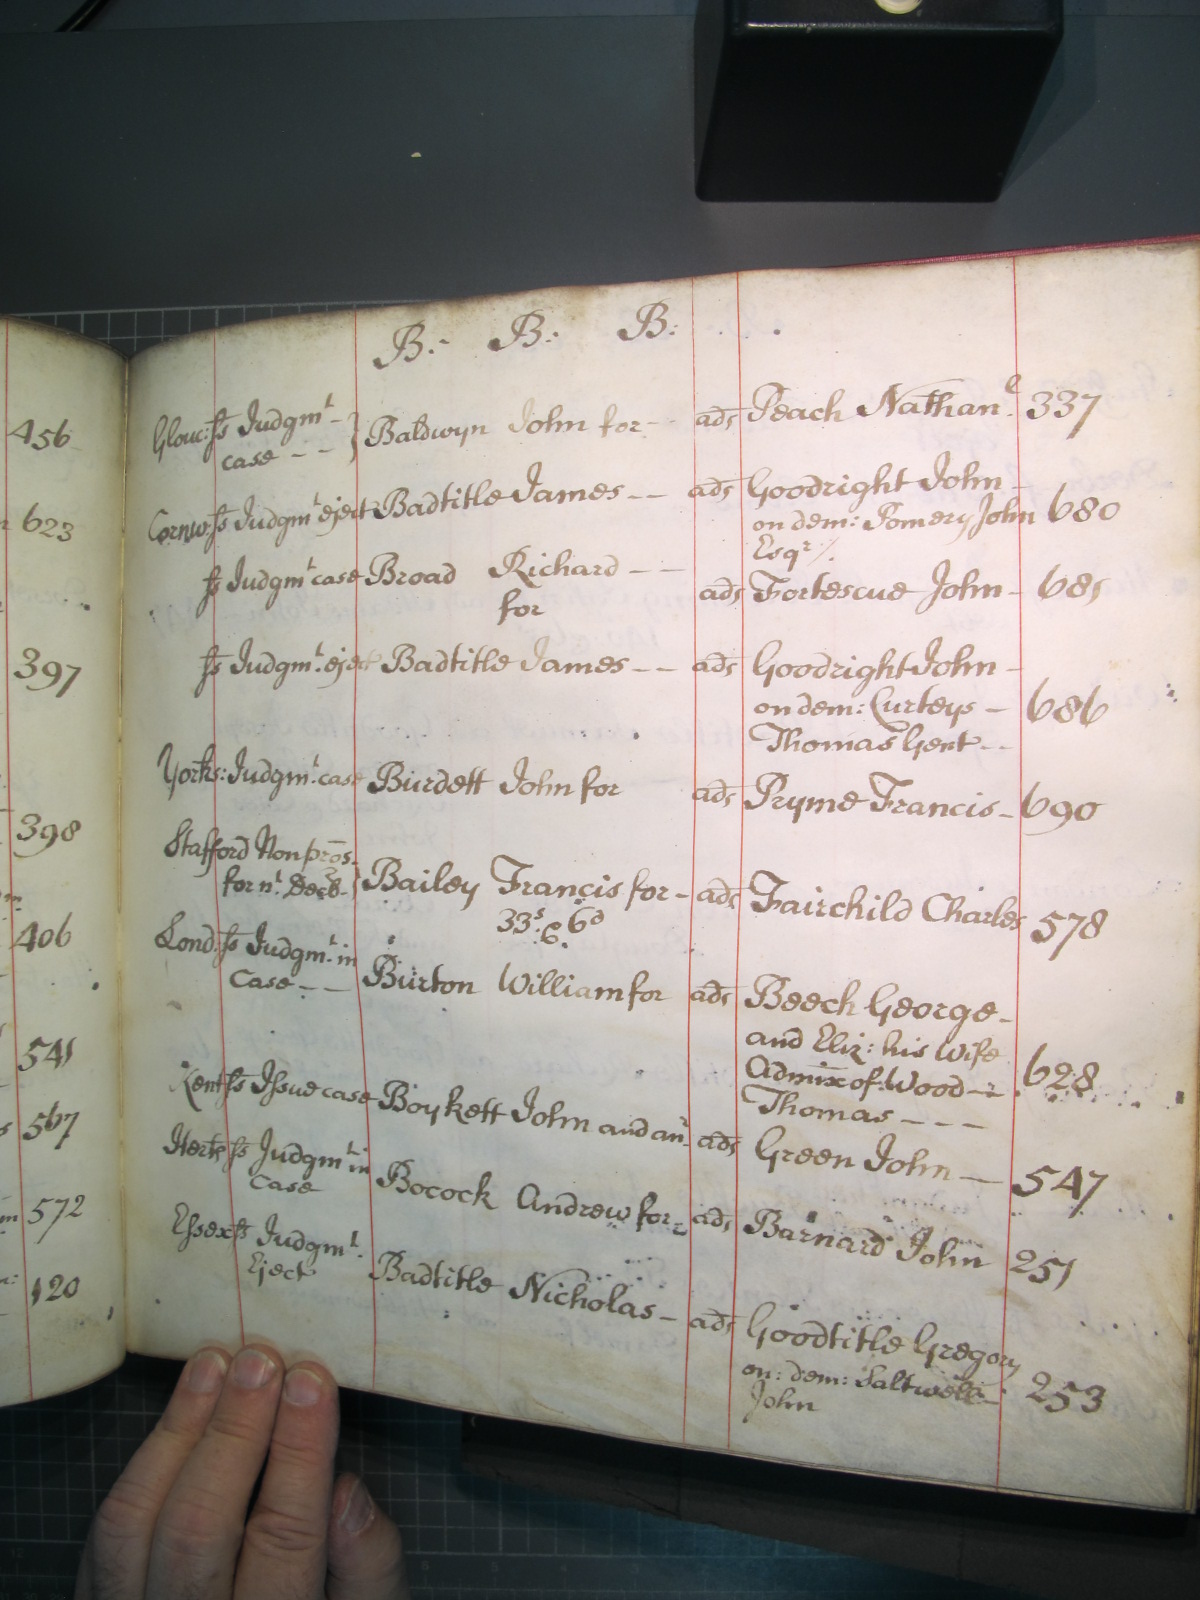 B:- B:- B:
Glouc: ss Judgmt- Baldwyn John for-- ads Peach Nathanl. 337
case - -
Cornw. ss Judgmt eject Badtitle James -- ads Goodright John -
on dem: Pomery John 680
Esqr
ss Judgmt case Broad Richard -- ads Fortescue John - 685
for
ss Judgmt. eject Badtitle James -- ads Goodright John -
on dem: Curteys - 686
Thomas Gent --
Yorks: Judgmt. case Burdett John for ads Pryme Francis - 690
Stafford Non pros.
for nt. Decl- Bailey Francis for - ads Fairchild Charles 578
33s. 6. 6d
Lond. ss Judgmt. in
Case -- Burton William for ads Beech George -
and Eliz: his Wife
Admix of Wood - 628
Thomas ---
Kent ss Issue case Boykett John and anr. ads Green John - 547
Herts ss Judgmt in
Case Bocock Andrew for- ads Barnard John 251
Essex ss Judgmt.
Eject Badtitle Nicholas - ads Goodtitle Gregory
on: dem: Saltwell - 253
John
456
623
397
398
406
541
567
572
120